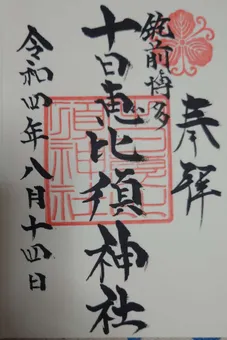 奉拝
筑前博多
十日恵比須神社
令和四年八月十四日